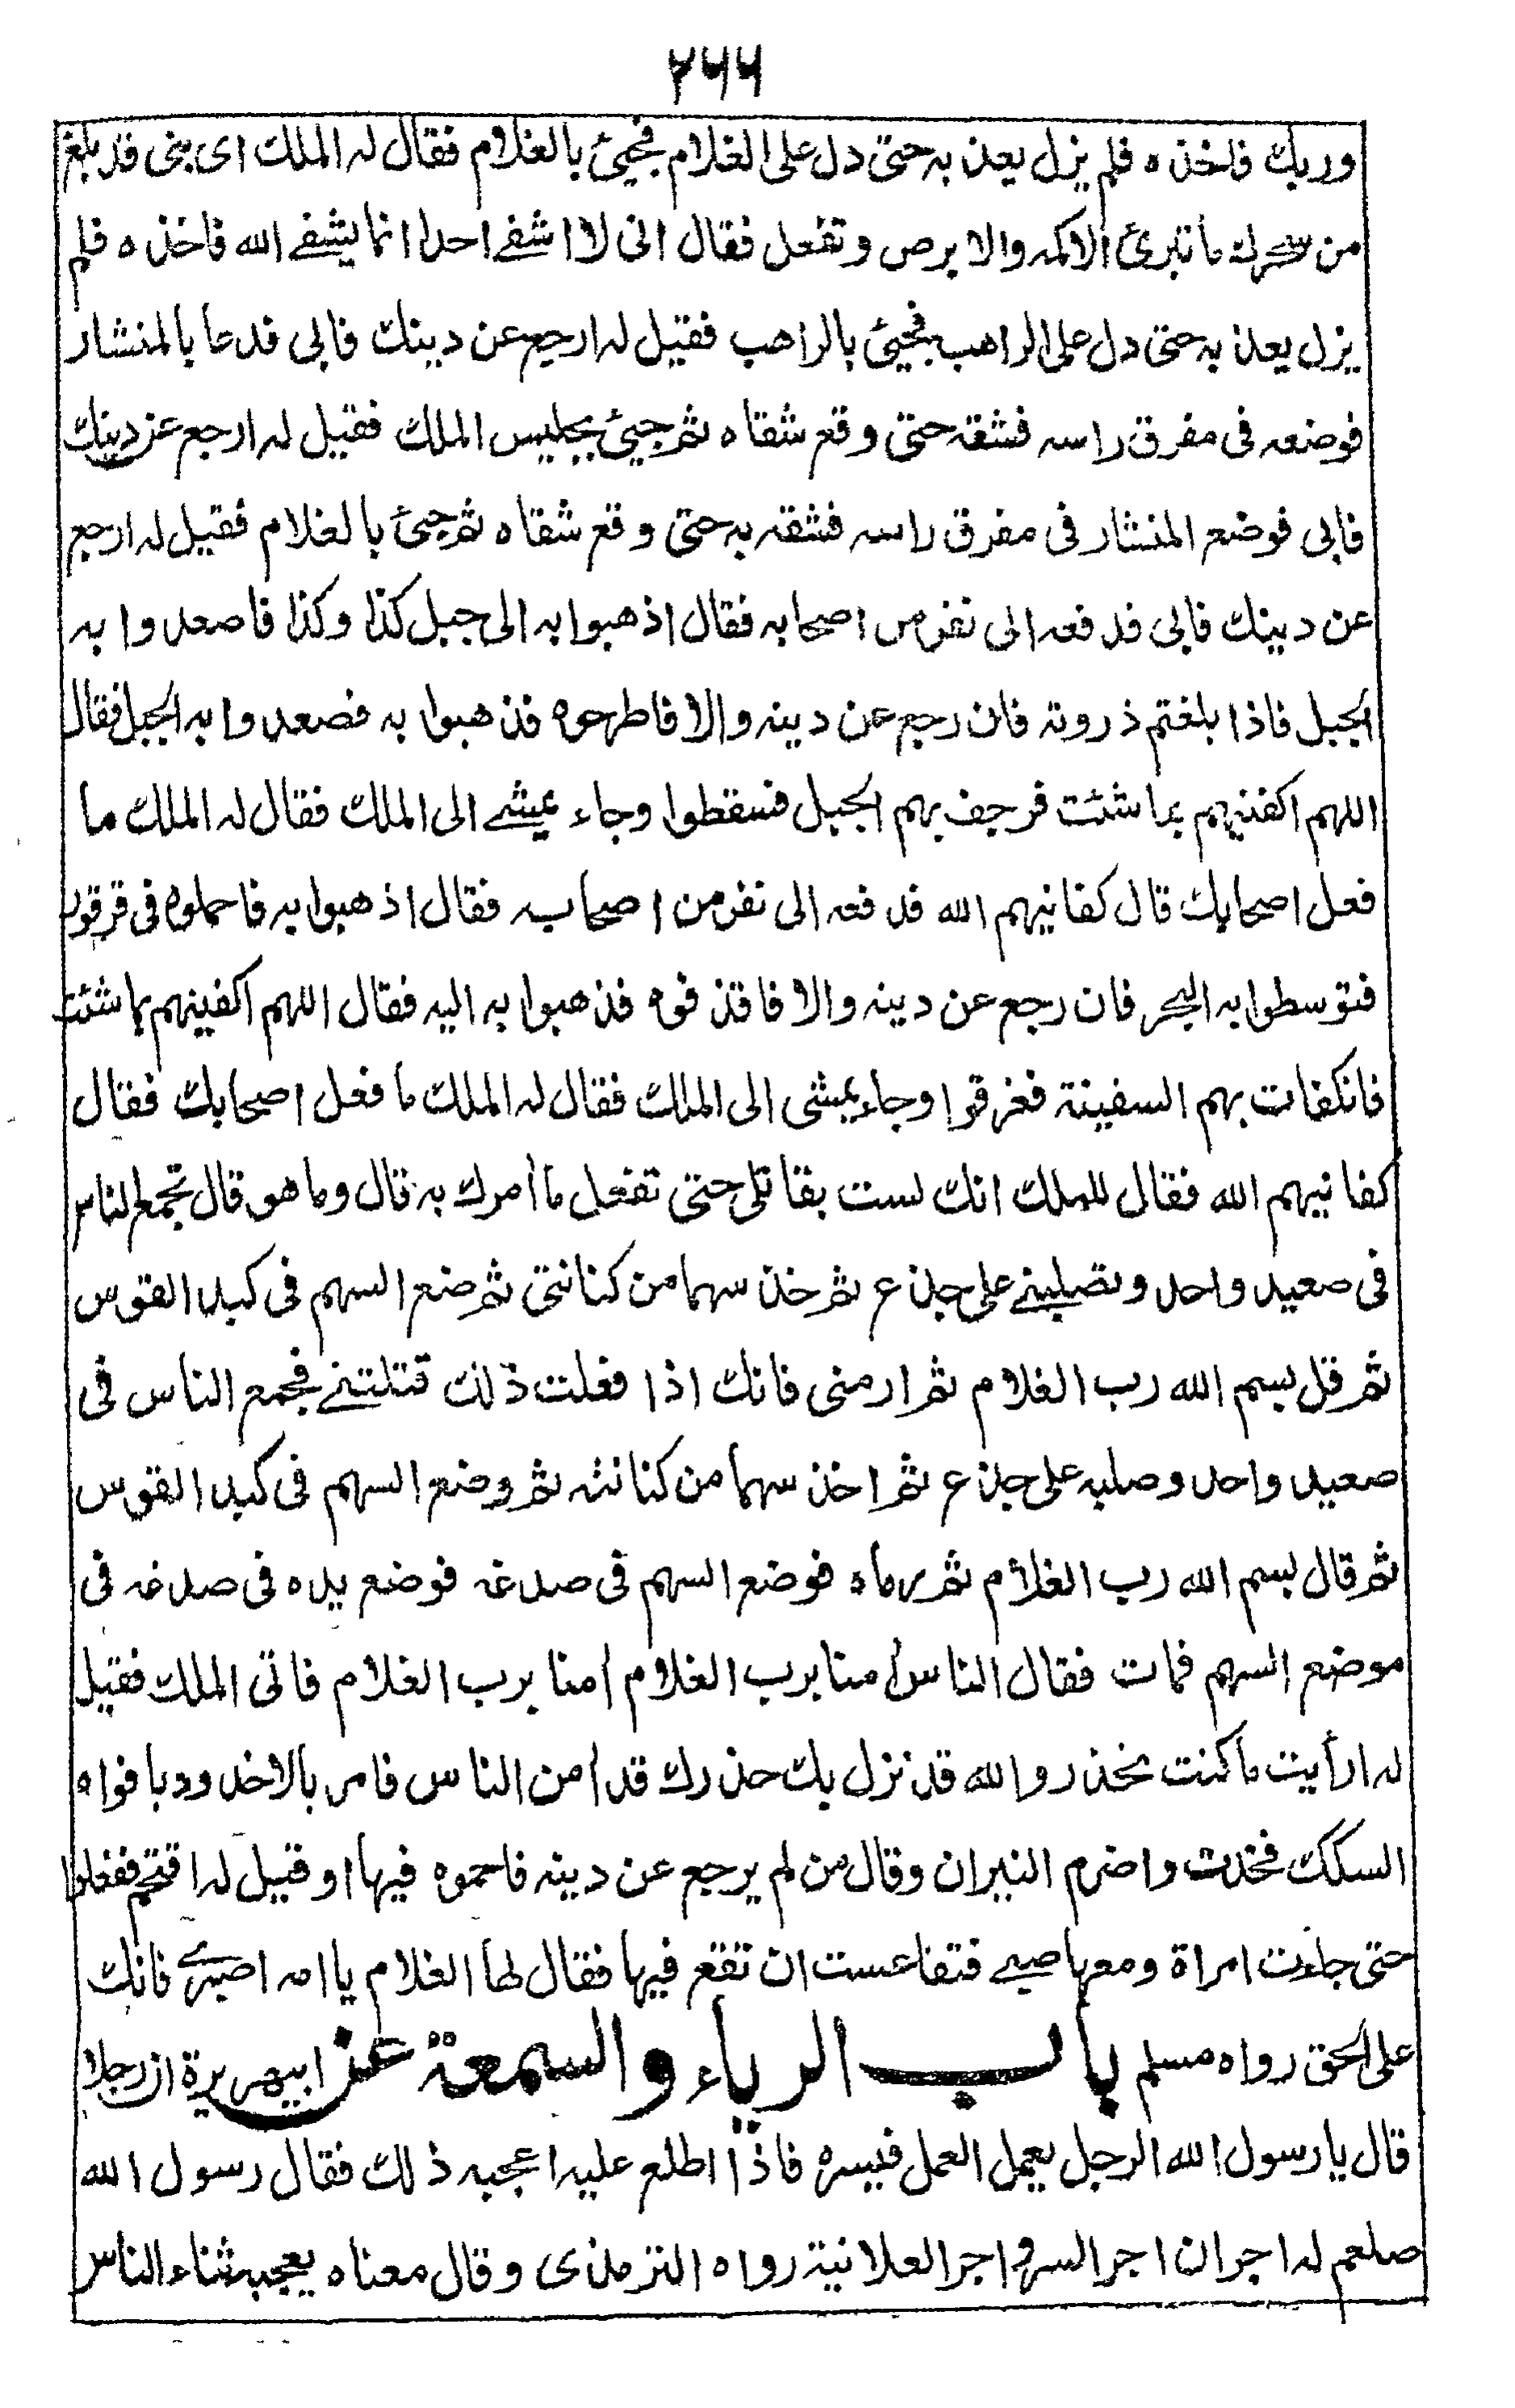 ۲۶۶
وربك فاخذه فلم يزل يعذبه حتى دل على الغلام فجيئ بالغلام فقال له الملك اى بنى قد بلغ
من سحرك ما تبرئ الاكمه والابرص وتفعل فقال انى لا اشفے احدا انما يشفے الله فاخذه فلم
يزل يعذبه حتى دل على الراهب فجيئ بالراهب فقيل له ارجع عن دينك فابى فدعا بالمنشار
فوضعه فى مفرق راسه فشقه حتى وقع شقاه ثم جيئ بجليس الملك فقيل له ارجع عن دينك
فابى فوضع المنشار فى مفرق راسه فشقه به حتى وقع شقاه ثم جيئ بالغلام فقيل له ارجع
عن دينك فابى فدفعه الى نفر من اصحابه فقال اذهبوا به الى جبل كذا وكذا فاصعدوا به
الجبل فاذا بلغتم ذروته فان رجع عن دينه والا فاطرحوه فذهبوا به فصعدوا به الجبل فقال
اللهم اكفنيهم بما شئت فرجف بهم الجبل فسقطوا وجاء يمشے الى الملك فقال له الملك ما
فعل اصحابك قال كفانيهم الله فدفعه الى نفر من اصحابه فقال اذهبوا به فاحملوه فى قرقور
فتوسطوا به البحر فان رجع عن دينه والا فاقذفوه فذهبوا به اليه فقال اللهم اكفينهم بما شئت
فانكفات بهم السفينة فغرقوا وجاء يمشى الى الملك فقال له الملك ما فعل اصحابك فقال
كفانيهم الله فقال للملك انك لست بقاتلى حتى تفعل ما أمرك به قال وما هو قال تجمع الناس
فى صعيد واحد وتصلبنے على جذع ثم خذ سهما من كنانتى ثم ضع السهم فى كبد القوس
ثم قل بسم الله رب الغلام ثم ارمنى فانك اذا فعلت ذلك قتلتنے فجمع الناس فى
صعيد واحد وصلبه على جذع ثم اخذ سهما من كنانته ثم وضع السهم فى كبد القوس
ثم قال بسم الله رب الغلام ثم رماه فوضع السهم فى صدغه فوضع يده فى صدغه فى
موضع السهم فمات فقال الناس أمنا برب الغلام أمنا برب الغلام فاتى الملك فقيل
له ارأيت ما كنت تحذر والله قد نزل بك حذرك قد أمن الناس فامر بالاخدود بافواه
السكك فخدت واضرم النيران وقال من لم يرجع عن دينه فاحموه فيها او قيل له اقتحم ففعلوا
حتى جاءت امراة ومعها صبے فتقاعست ان تقع فيها فقال لها الغلام يا امه اصبرے فانك
على الحق رواه مسلم باب الرياء والسمعة عن ابيهريرة ان رجلا
قال يا رسول الله الرجل يعمل العمل فيسره فاذا اطلع عليه اعجبه ذلك فقال رسول الله
صلعم له اجران اجر السر و اجر العلانية رواه الترمذى وقال معناه يعجبه ثناء الناس